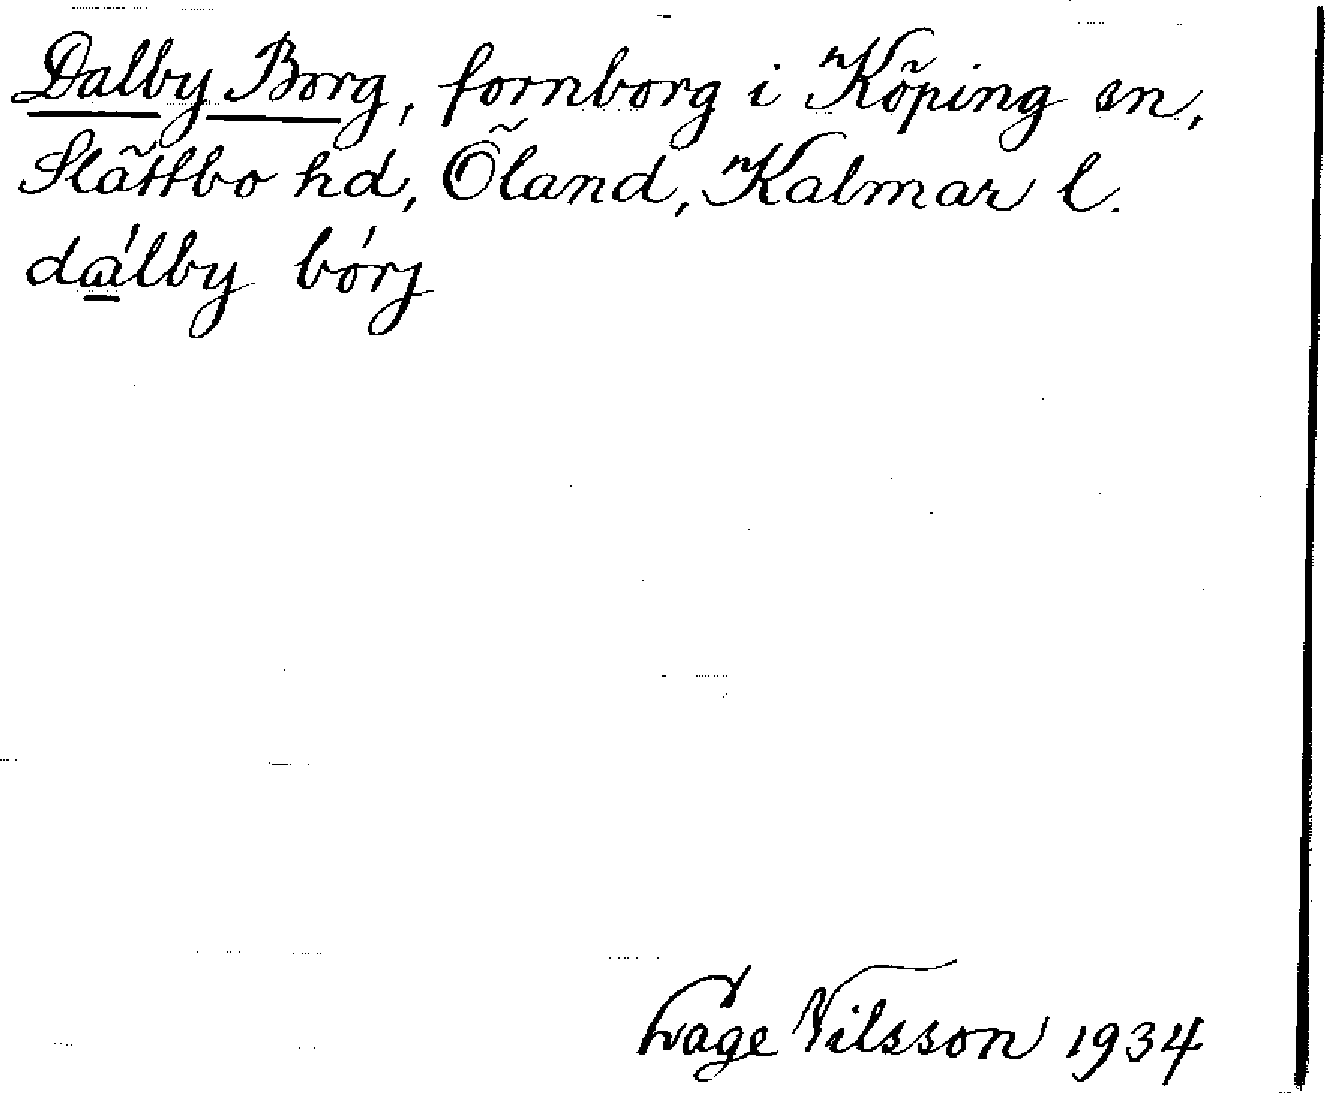 Dalby Borg, fornborg i Köping sn,
Slättbo hd, Öland, Kalmar l.
dálby bórj
Lage Nilsson 1934